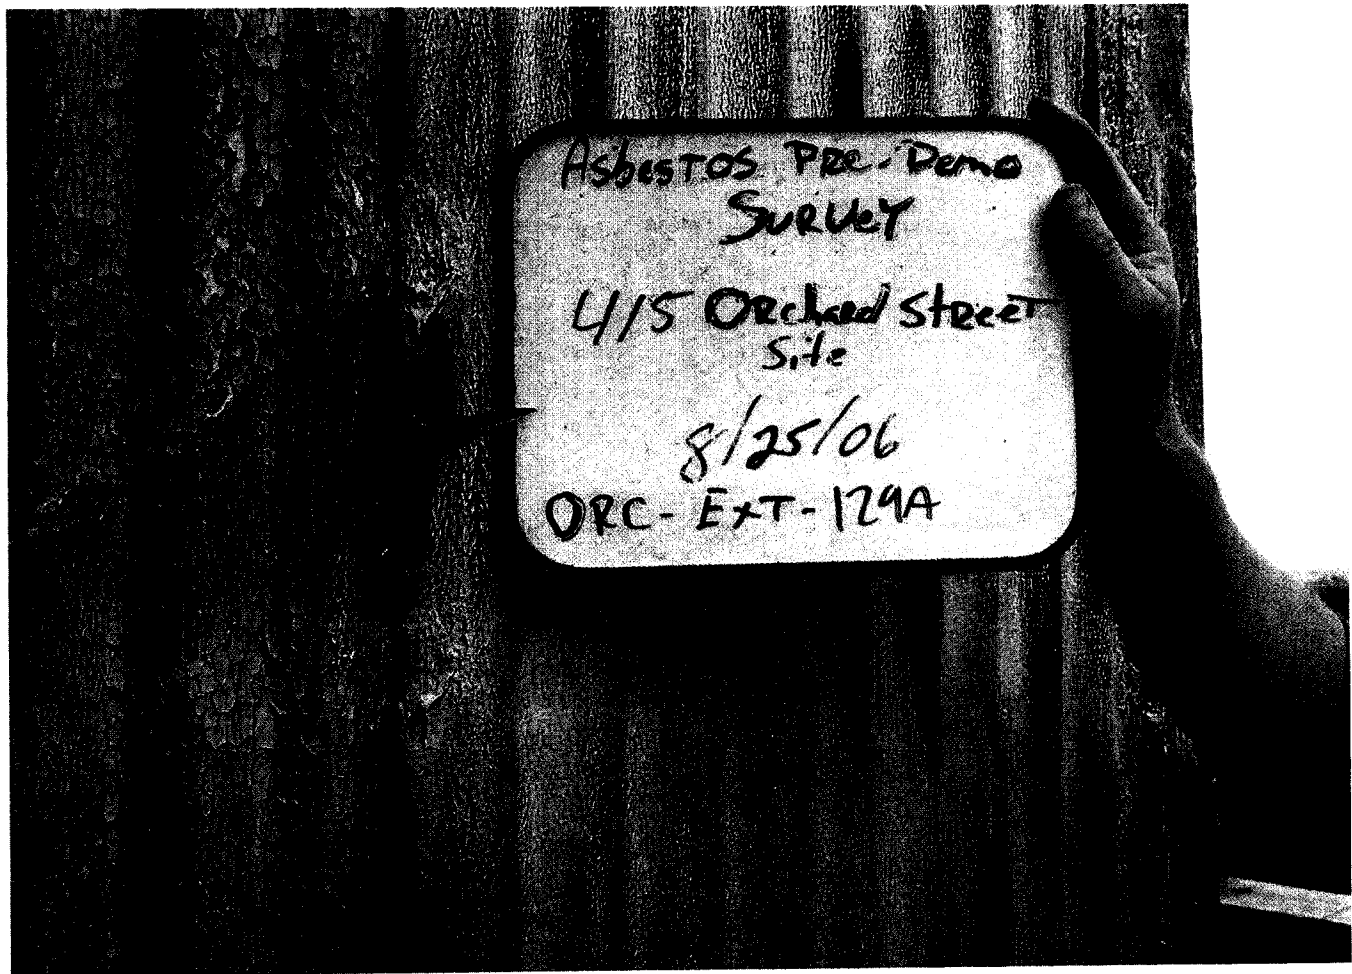 Asbestos Pre-Demo
Survey
415 Orchard Street
Site
8/25/06
ORC-EXT-129A